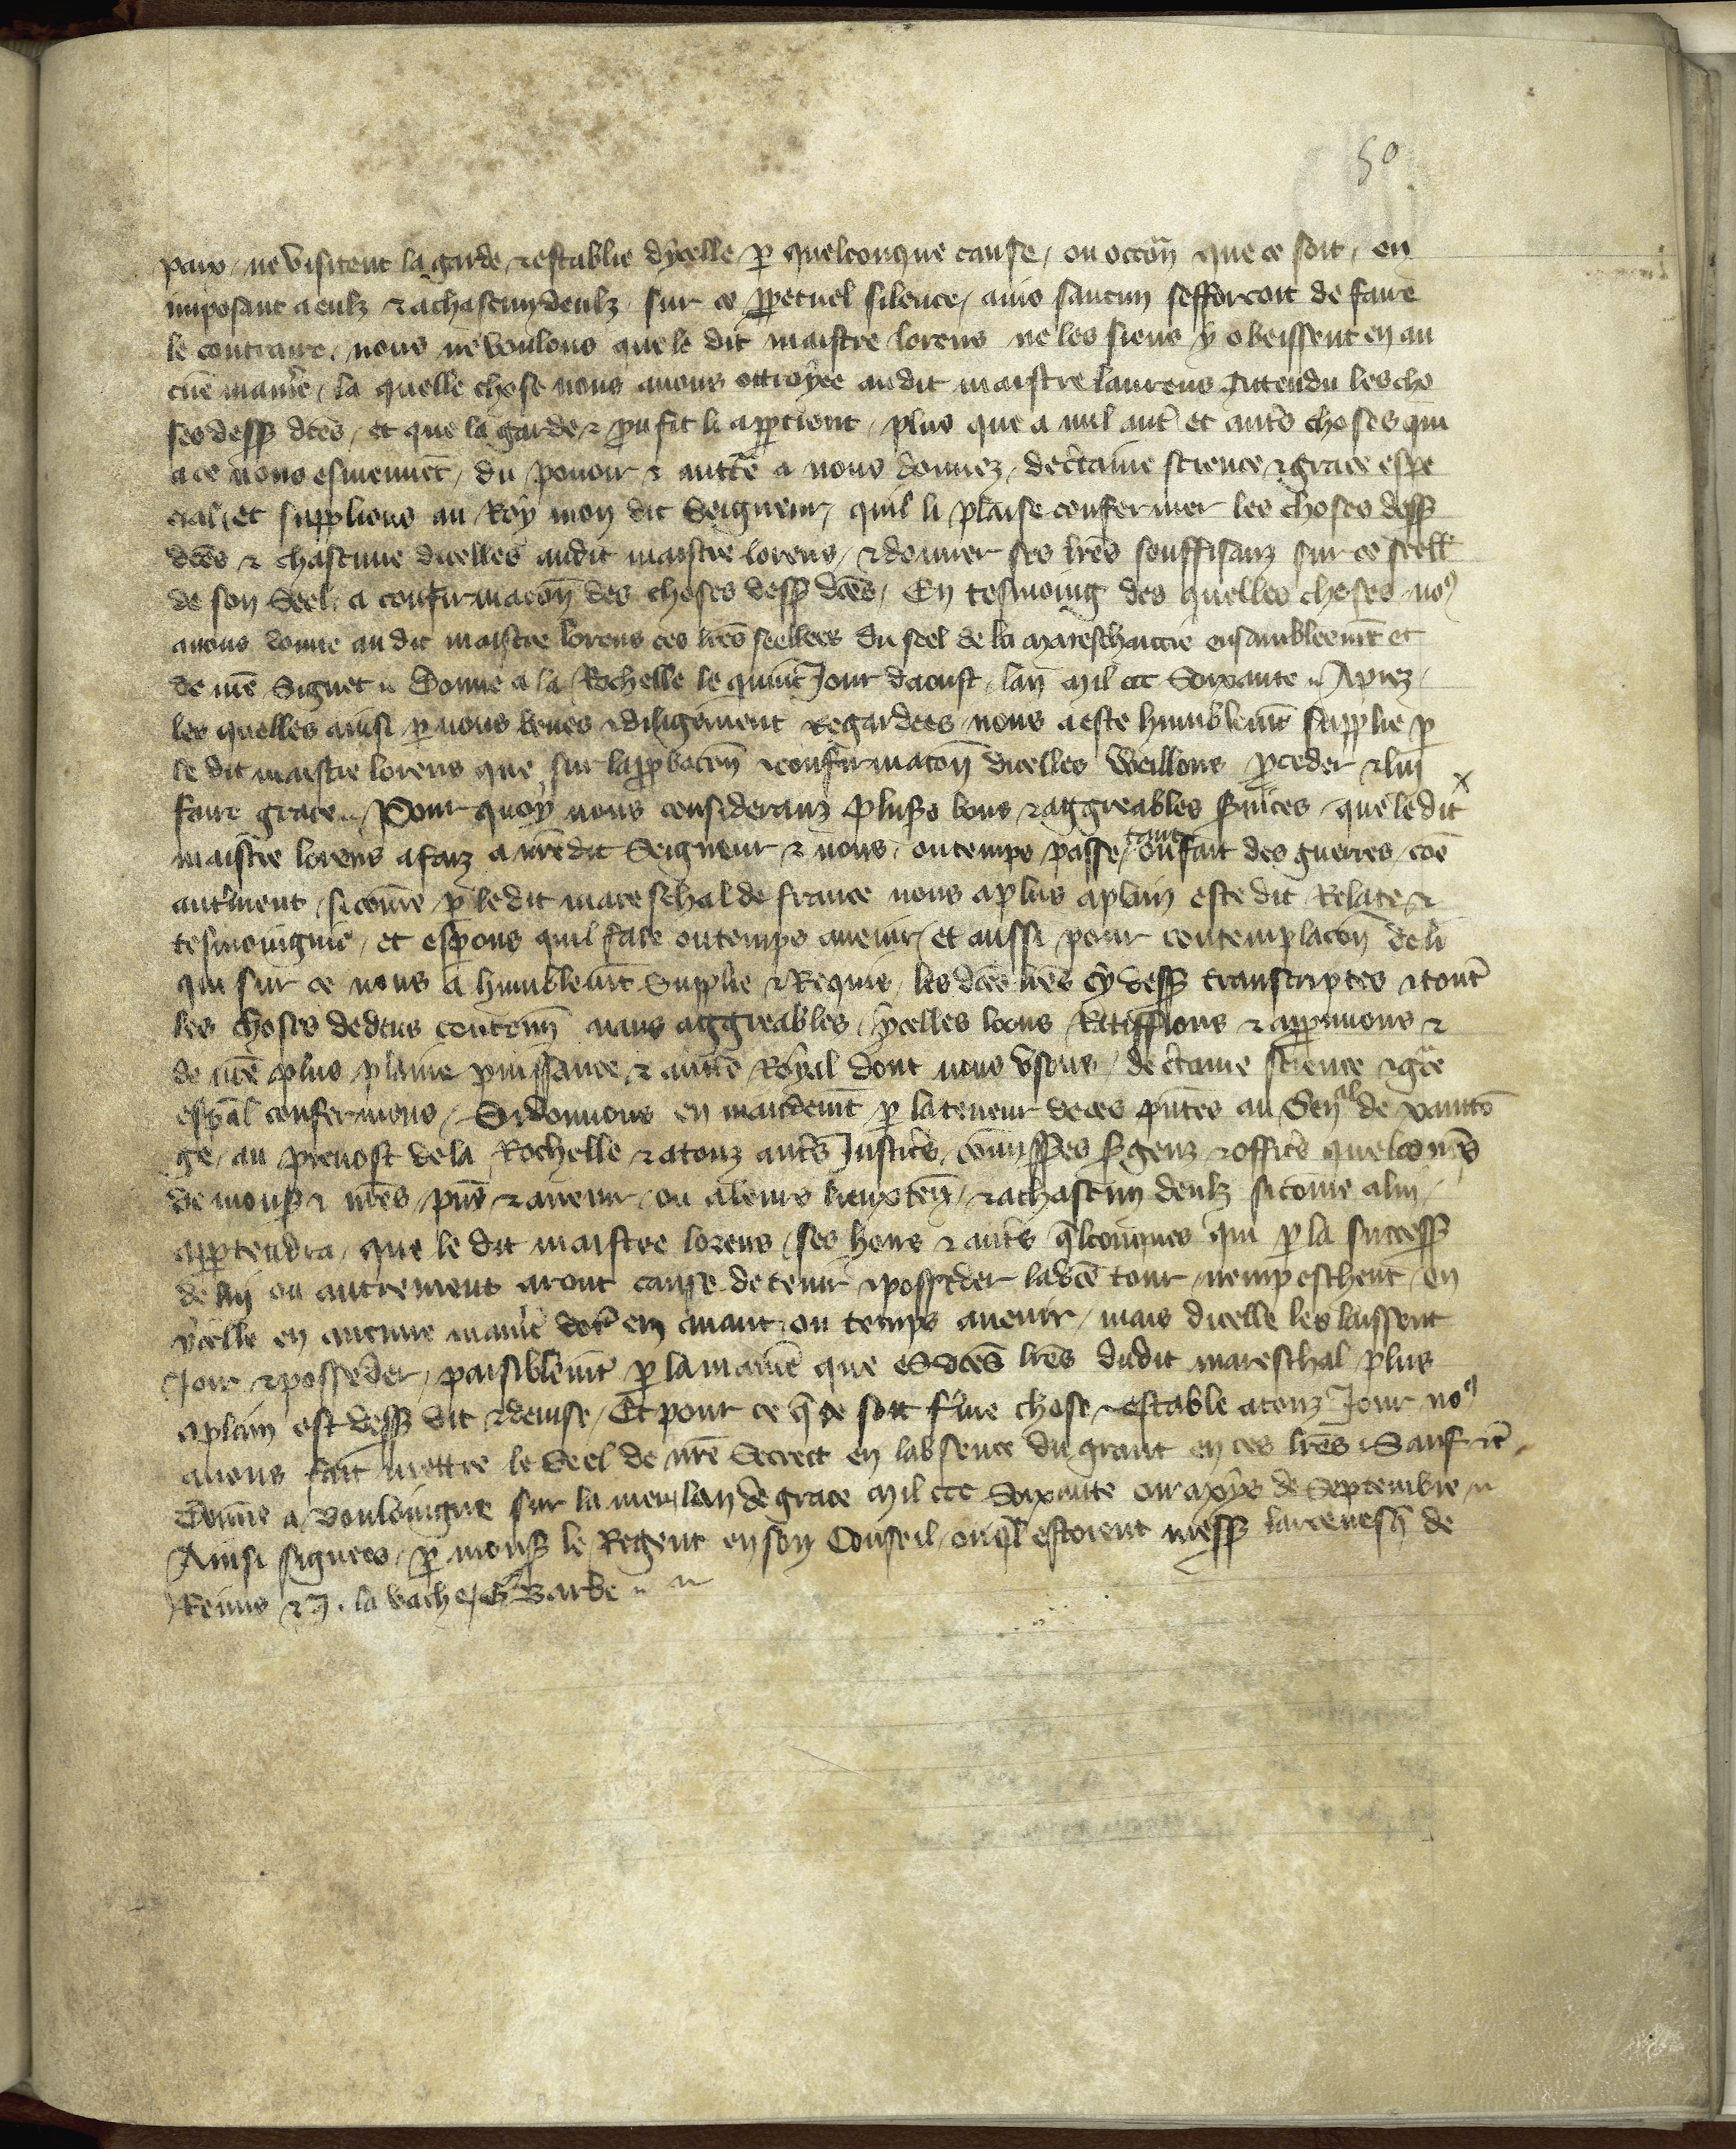 50
paix, ne visitent la garde & establie dycelle, p quelconque cause, ou occon que ce soit, en
imposant a eulz & a chascun deulz sur ce ppetuel silence, ains saucun sefforcoit de faire
le contraire, nous ne voulons que le dit maistre lorens ne les siens y obeissent en au
cune maniere, la quelle chose nous avons ottroyee audit maistre laurens Attendu les cho
ses dess dces, et que la garde & proufit li appartient, plus que a nul autre et autres choses qui
a ce nous esmeuvent, du povoir & auttte a nous donnez, de ctaine science & grace espe
cial, et supplions au Roy mon dit Seigneur, quil li plaise confermer les choses dess
dces & chascune dicelles audit maistre lorens, & donner ses lres souffisanz sur ce seell
de son Seel, a confirmacon des choses dess dces, En tesmoing des quelles choses no9
avons donne au dit maistre lorens ces lres seellees du seel de la mareschaucie ensambleemt et
de nre Signet Donne a la Rochelle le quint Jour daoust, lan mil ccc Soixante Aprez
les quelles ainsi p nous veues & diligement Regardees, nous a este humblemt supplie p
le dit maistre lorens que sur lapprobacon & confirmacon dicelles Weillons pceder & lui
faire grace Pour quoy nous considerans pluss bons & aggreables svices que le dit x
maistre lorens a faiz a nre dit Seigneur & nous, ou temps passe, tant ou fait des guerres, coe
autrement, si comme p le dit mareschal de france nous a plus a plain este dit Relate &
tesmoingnie, et esperons quil face ou temps avenir, et aussi pour contemplacon de li
qui sur ce nous a humblemt Supplie & Requis, les dces lres cy dess transcriptes & toutes
les choses dedens conten nans aggreables, ycelles loons Ratiffions & approuvons &
de nre plus plaine puissance & auttte Royal dont nous usons, de ctaine science & gce
espal confermons, Si donnons en mandemt p la teneur de ces pntes au Senal de xantto
ge, au prevost de la Rochelle & a touz autres Justiciers, commisses sgenz & officiers quelconques
de mons & nres, pns & avenir, ou a leurs lieuxten, & a chascun deulz si comme a lui
appartendra, que le dit maistre lorens, ses hoirs & autres qlconques qui p la success
de lui ou autrement aront cause de tenir & posseder la dce tour, nempeschent, en
ycelle en aucune maniere dores en avant, ou temps avenir, mais dicelle les laissent
Joir & posseder, paisiblemt p la maniere que es dces lres dudit mareschal plus
a plain est dess dit & devise, Et pour ce q ce soit ferme chose & estable a touz Jour no9
avons fait mettre le Seel de nre Secret en labsence du grant en ces lres, Sauf &c
Donne a Bouloingne sur la mer lan de grace mil ccc Soixante ou moys de Septembre
Ainsi signees, p mons le Regent en son Conseil, ouql estoient mess larcevesq de
Reims & J. la vache, G Barbe